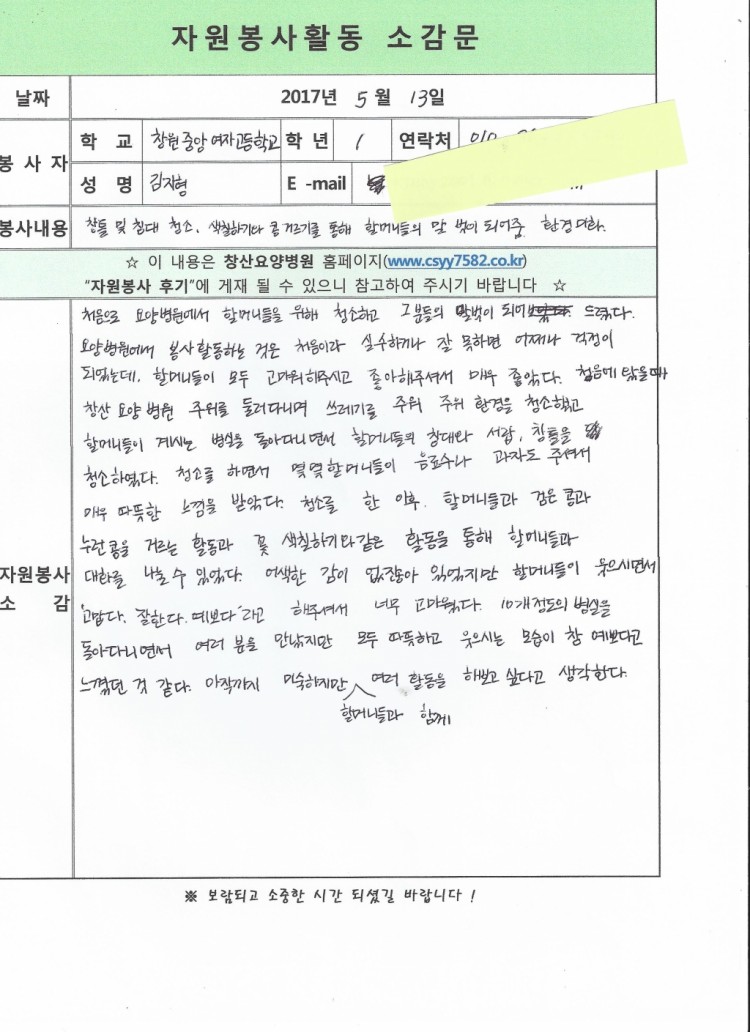 자원봉사활동 소감문
날짜 2017년 5월 13일
봉사자 학 교 창원중앙여자고등학교 학 년 1 연락처 010
성 명 김지형 E -mail
봉사내용 창틀 및 침대 청소, 색칠하기와 콩 거르기를 통해 할머니들의 말 벗이 되어줌. 환경미화.
☆ 이 내용은 창산요양병원 홈페이지(www.csyy7582.co.kr)
"자원봉사 후기"에 게재 될 수 있으니 참고하여 주시기 바랍니다 ☆
자원봉사 소 감
처음으로 요양병원에서 할머니들을 위해 청소하고 그분들의 말벗이 되어 드렸다.
요양병원에서 봉사활동하는 것은 처음이라 실수하거나 잘 못하면 어쩌나 걱정이
되었는데, 할머니들이 모두 고마워해주시고 좋아해주셔서 매우 좋았다. 처음에 왔을때
창산 요양 병원 주위를 둘러다니며 쓰레기를 주워 주위 환경을 청소했고
할머니들이 계시는 병실을 돌아다니면서 할머니들의 침대와 서랍, 창틀을
청소하였다. 청소를 하면서 몇몇할머니들이 음료수나 과자도 주셔서
매우 따뜻한 느낌을 받았다. 청소를 한 이후, 할머니들과 검은 콩과
누런콩을 거르는 활동과 꽃 색칠하기와같은 활동을 통해 할머니들과
대화를 나눌 수 있었다. 어색한 감이 없잖아 있었지만 할머니들이 웃으시면서
'고맙다. 잘한다. 예쁘다'라고 해주셔서 너무 고마웠다. 10개정도의 병실을
돌아다니면서 여러 분을 만났지만 모두 따뜻하고 웃으시는 모습이 참 예쁘다고
느꼈던 것 같다. 아직까지 미숙하지만 할머니들과 함께 여러 활동을 해보고 싶다고 생각한다.
※ 보람되고 소중한 시간 되셨길 바랍니다 !